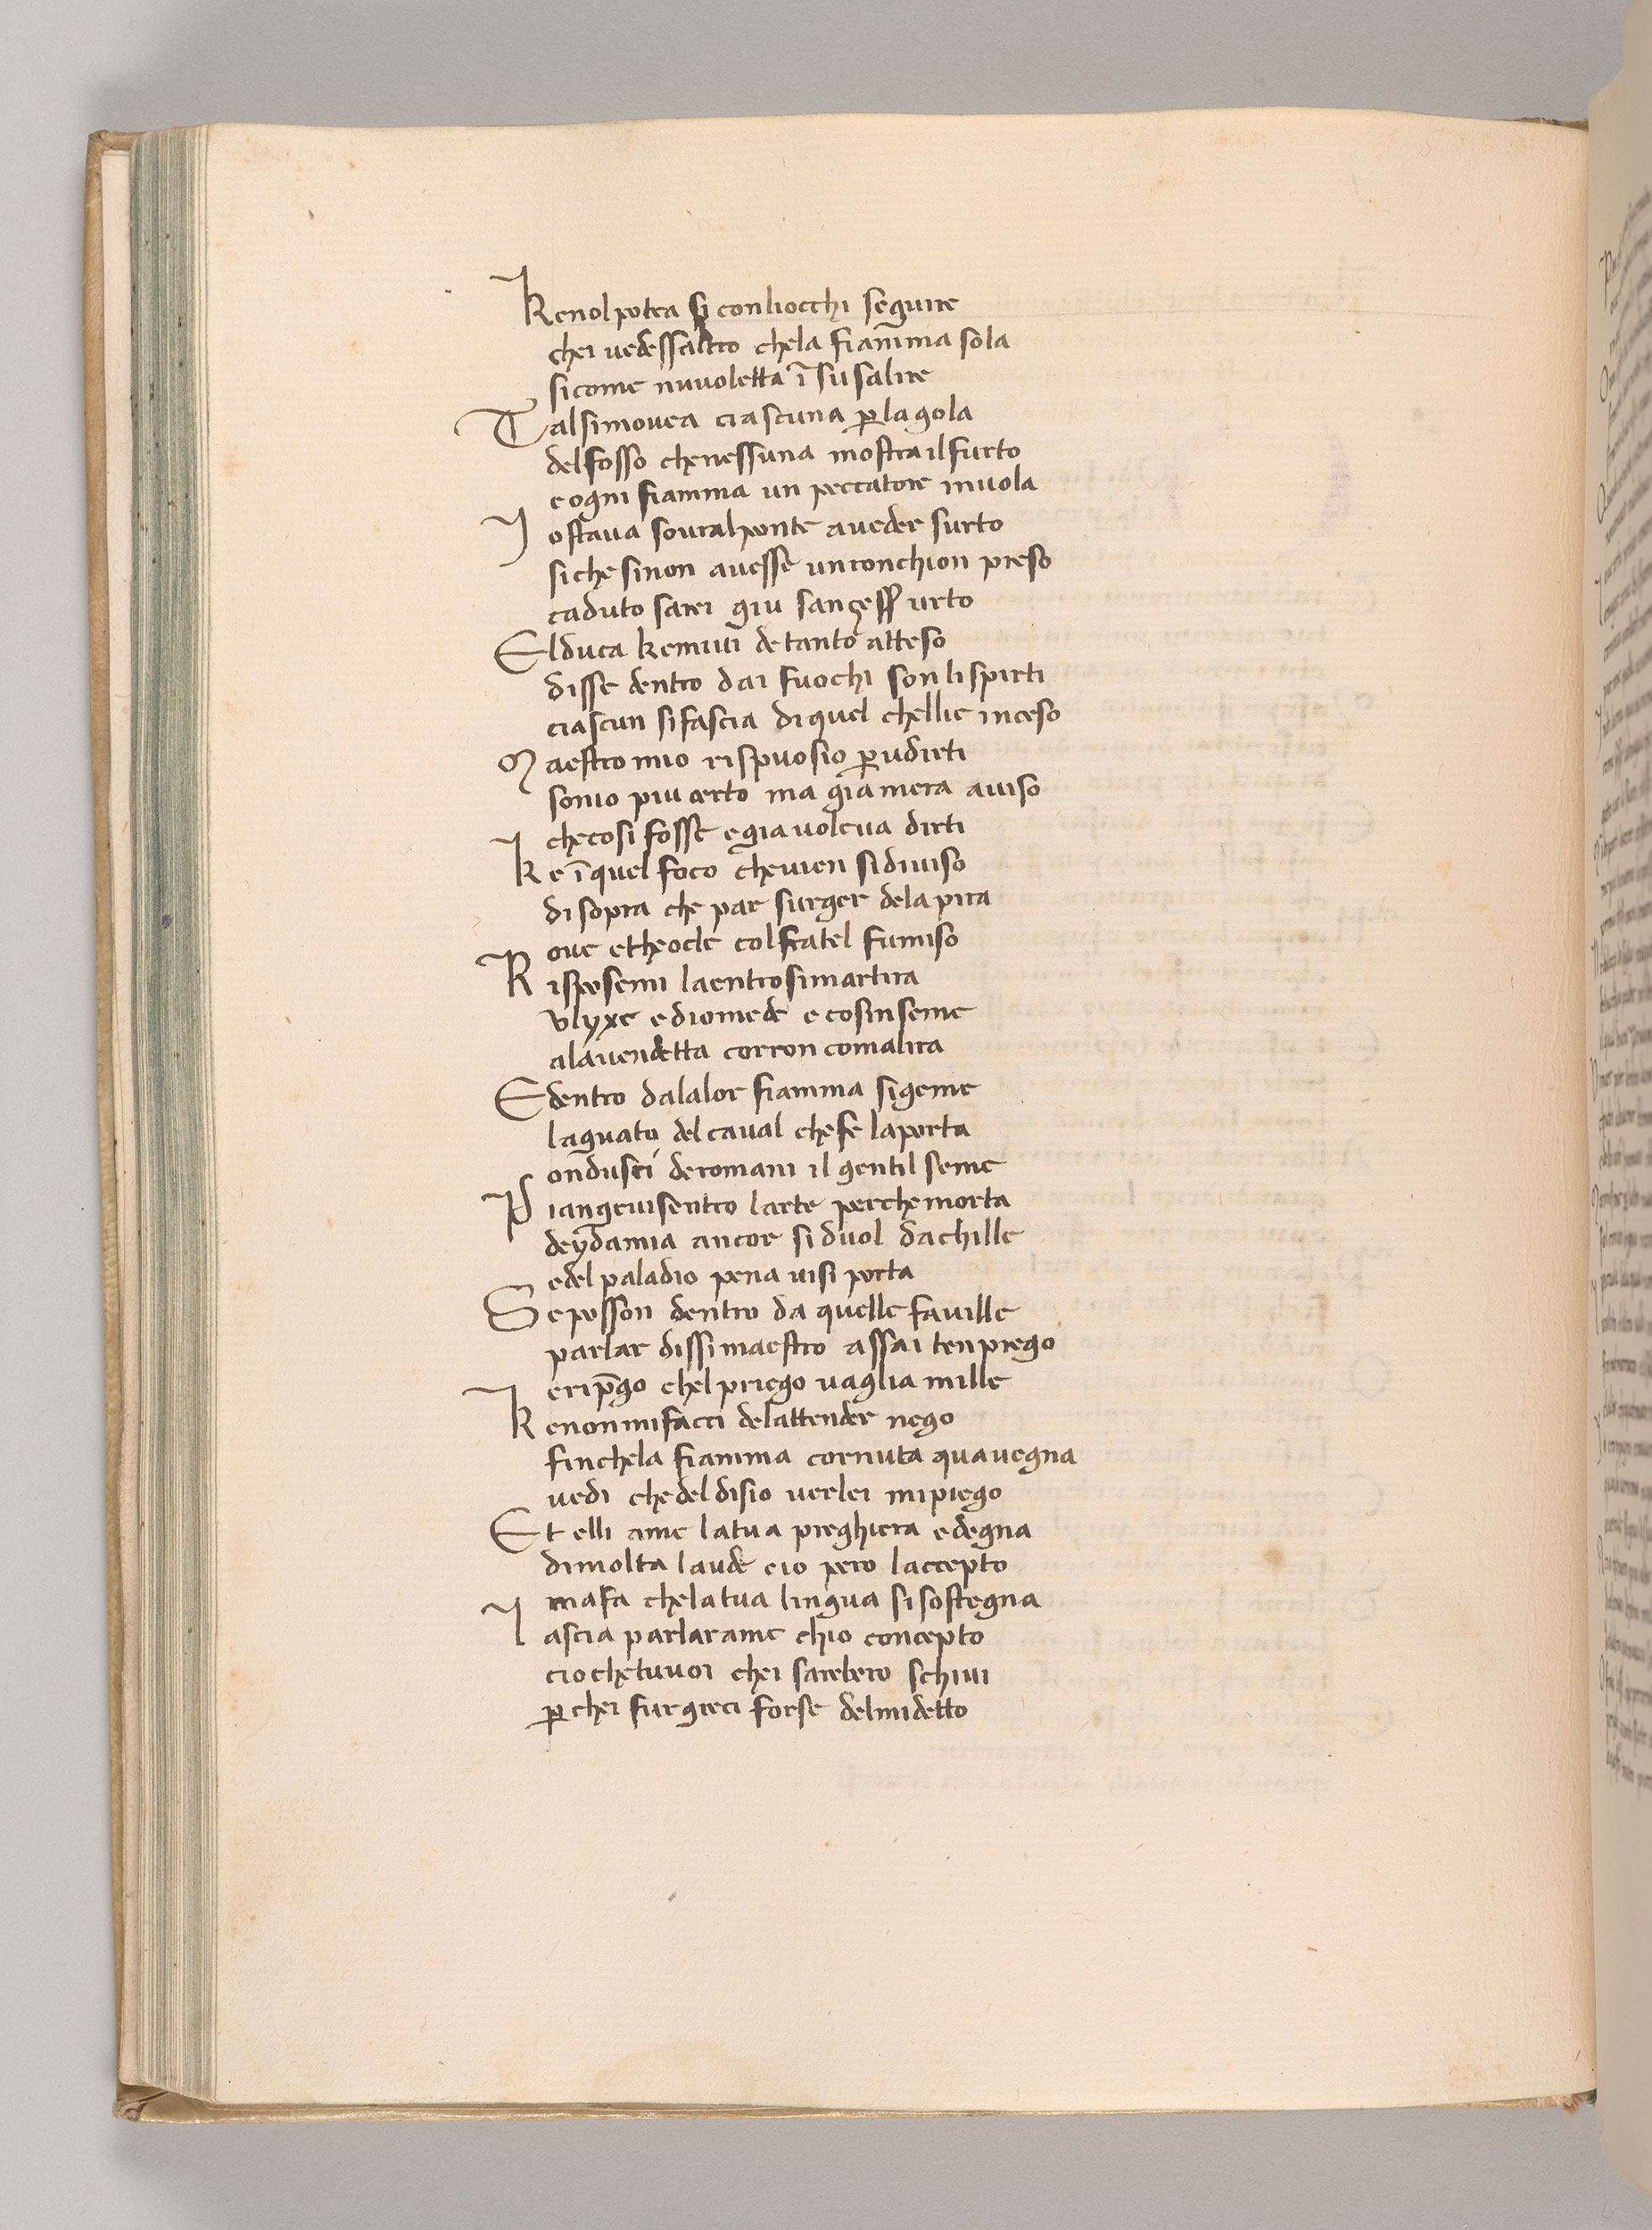 Kenol potea si conliocchi seguire
chei vedessaltro chela fiamma sola
sicome nuvoletta ī su salire
Tal simovea ciascuna ꝑ la gola
del fosso chenessuna mostra il furto
e ogni fiamma un peccatore invola
Iostava sovralponte aveder surto
siche sinon avesse unronchion preso
caduto sarei giu sanzesser urto
Elduca kemivi detanto atteso
disse dentro dai fuochi son li spirti
ciascun sifascia diquel chellie inceso
Maestro mio rispuosio ꝑ udirti
sonio piu certo ma giamera aviso
checosi fosse egiavoleva dirti
Ke īquel foco chevien sidiviso
disopra che par surger dela pira
ove etheocle col fratel fumiso
Risposemi laentrosimartira
Vlyxe ediomede ecosinseme
alavendetta corron comalira
Edentro dalalor fiamma sigeme
laguato del caval chefe laporta
ondusci deromani il gentil seme
Piangevisentro larte perchemorta
deydamia ancor siduol dachille
edel paladio pena visi porta
Seposson dentro da quelle faville
parlar dissimaestro assai tenpriego
eripgo chel priego vaglia mille
Kenonmifacci delattender nego
finchela fiamma cornuta quavegna
vedi chedel disio verlei mipiego
Et elli ame latua preghiera edegna
dimolta laude eio pero laccepto
mafa chelatua lingua sisostegna
lascia parlarame chio concepto
ciochetuvoi chei sarebero schivi
ꝑchei furgreci forse delmidetto